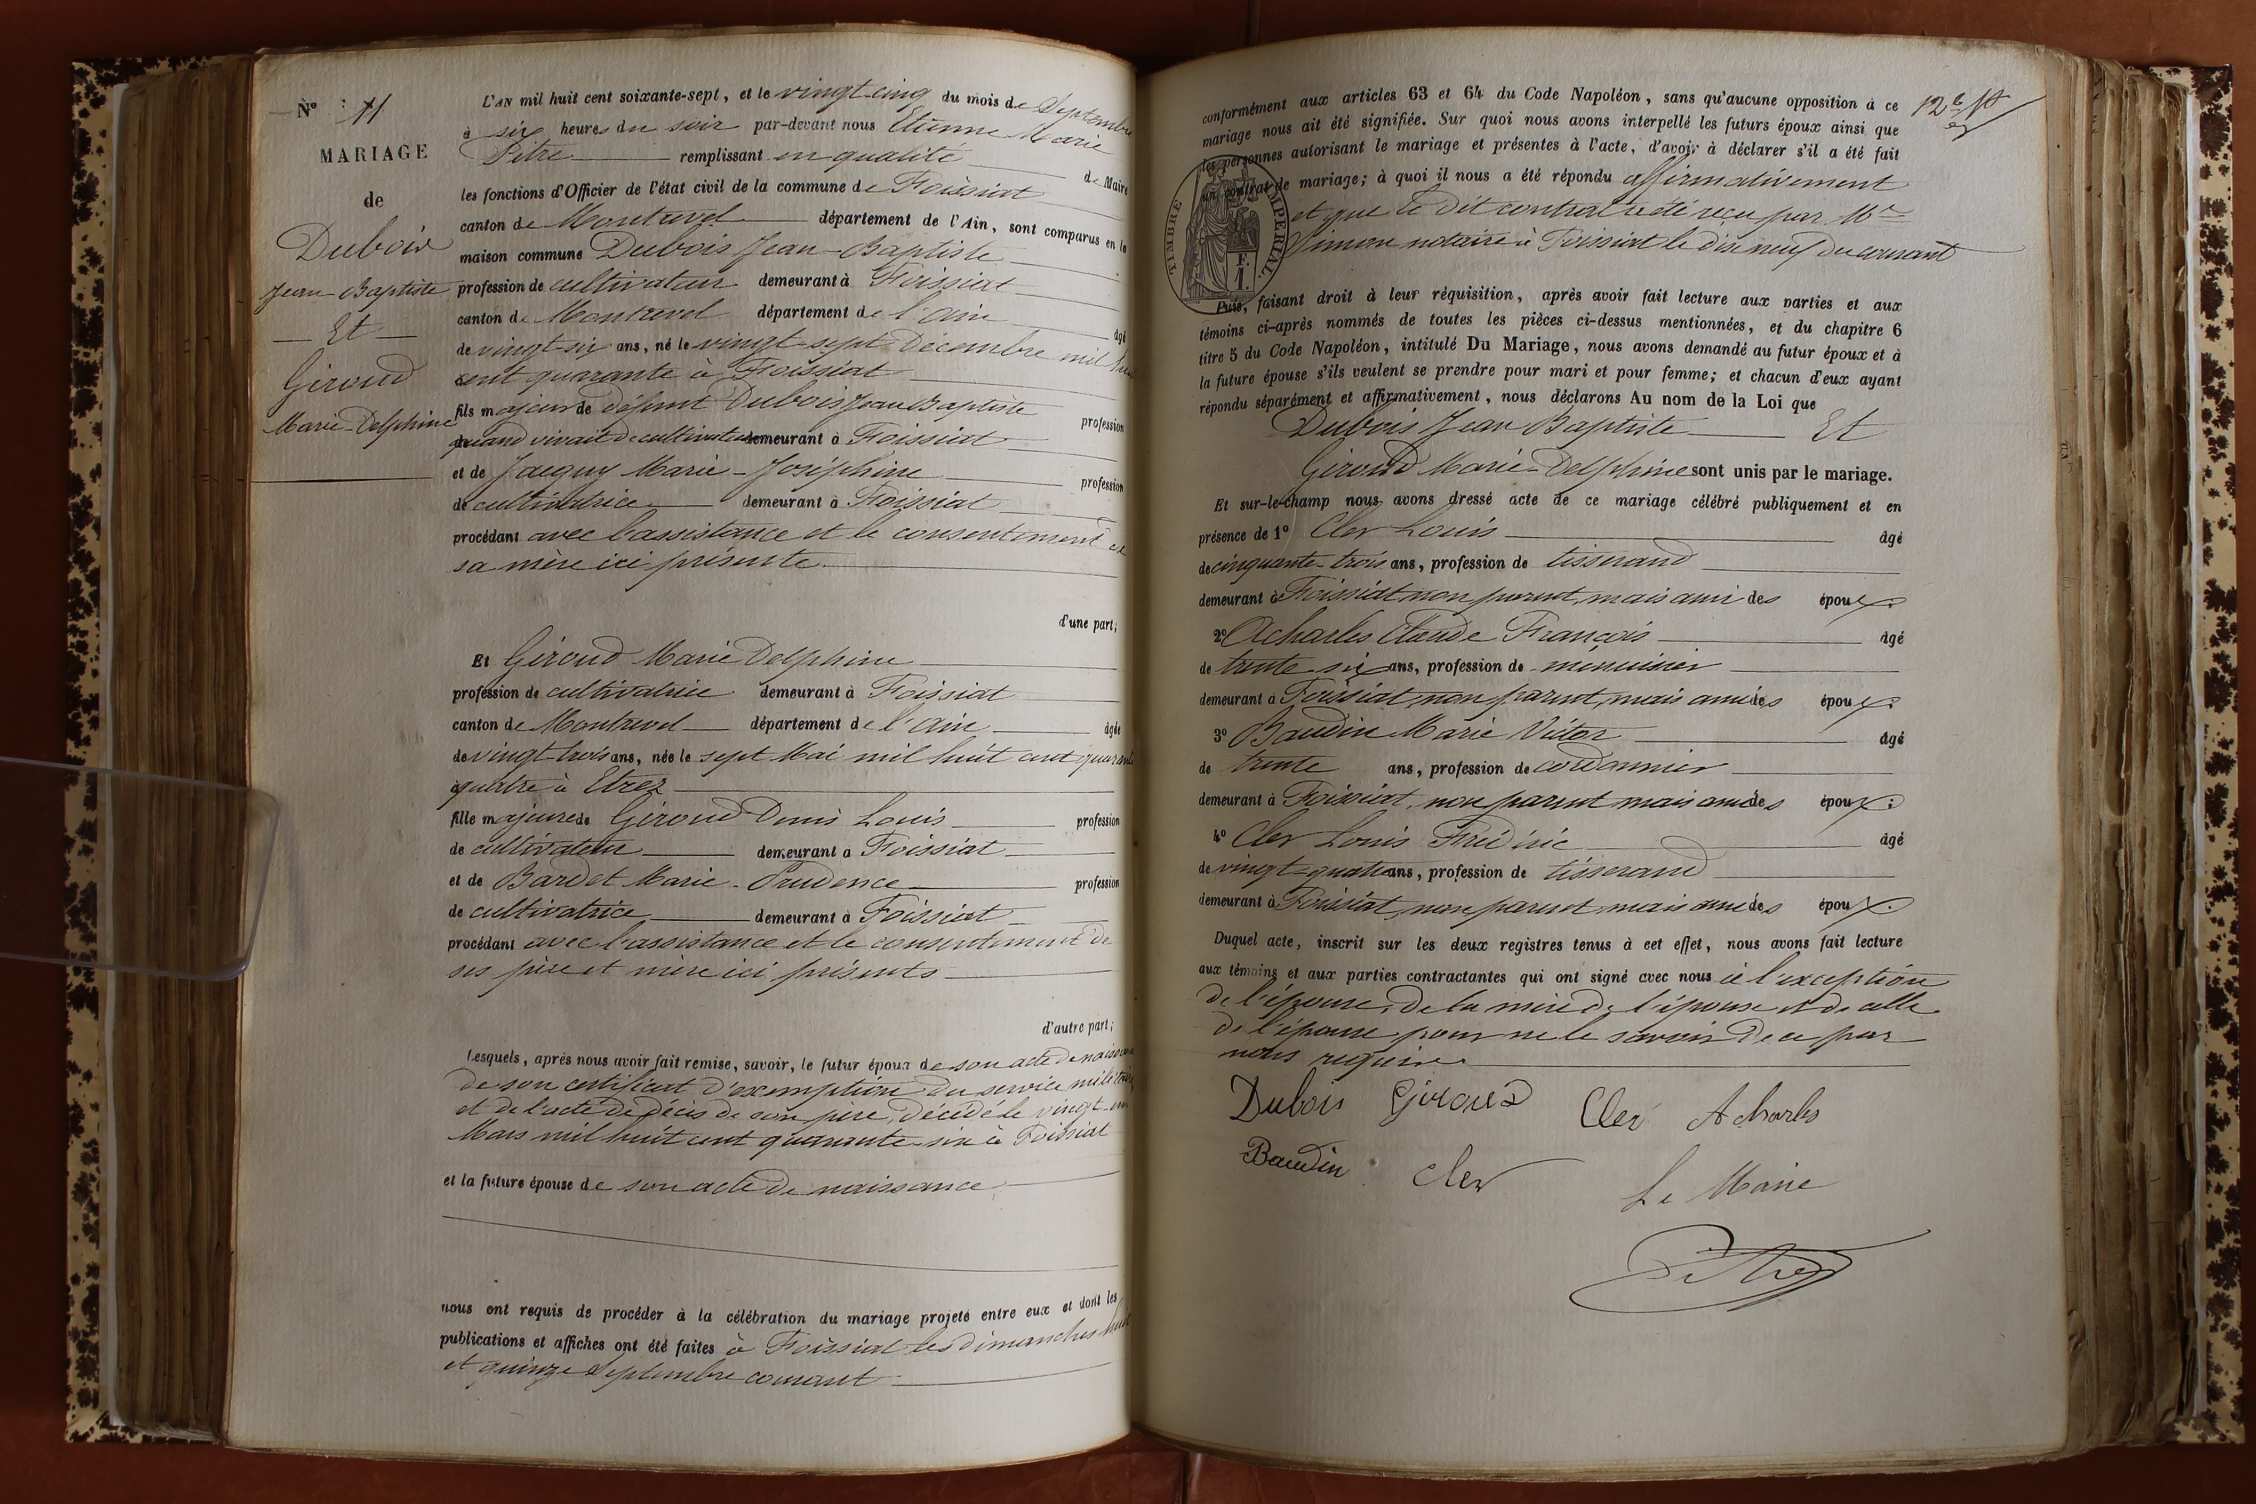 N° 11
MARIAGE
de
Dubois
Jean-Baptiste
Et
Giroud
Marie-Delphine
L'AN mil huit cent soixante-sept, et le vingt-cinq du mois de Septembre
à six heures du soir par-devant nous Etienne Marie
Pitre remplissant en qualité de Maire
les fonctions d'Officier de l'état civil de la commune de Foissiat
canton de Montrevel département de l'Ain, sont comparus en la
maison commune Dubois Jean-Baptiste
profession de cultivateur demeurant à Foissiat
canton de Montrevel département de l'ain âgé
de vingt-six ans, né le vingt-sept Décembre mil huit
cent quarante à Foissiat
fils majeur de défunt Dubois Jean Baptiste profession
quand vivait de cultivateur demeurant à Foissiat
et de Jacquy Marie-Joséphine profession
de cultivatrice demeurant à Foissiat
procédant avec l'assistance et le consentement de
sa mère ici présente
d'une part;
Et Giroud Marie Delphine
profession de cultivatrice demeurant à Foissiat
canton de Montrevel département de l'ain âgée
de vingt trois ans, née le sept Mai mil huit cent quarante
quatre à Etrez
fille majeure de Giroud Denis Louis profession
de cultivateur demeurant à Foissiat
et de Bardet Marie-Prudence profession
de cultivatrice demeurant à Foissiat
procédant avec l'assistance et le consentement de
ses père et mère ici présents
d'autre part;
Lesquels, après nous avoir fait remise, savoir, le futur époux de son acte de naissance
de son certificat d'exemption du service militaire
et de l'acte de décès de son père, décédé le vingt-un
Mars mil huit cent quarante-six à Foissiat
et la future épouse de son acte de naissance
nous ont requis de procéder à la célébration du mariage projeté entre eux et dont les
publications et affiches ont été faites à Foissiat les dimanches huit
et quinze Septembre courant
conformément aux articles 63 et 64 du Code Napoléon, sans qu'aucune opposition à ce
mariage nous ait été signifiée. Sur quoi nous avons interpellé les futurs époux ainsi que
les personnes autorisant le mariage et présentes à l'acte, d'avoir à déclarer s'il a été fait
un contrat de mariage; à quoi il nous a été répondu affirmativement
et que le dit contrat a été reçu par Me
Simon notaire à Foissiat le dix neuf du courant
TIMBRE IMPERIAL
F.
1.
Puis, faisant droit à leur réquisition, après avoir fait lecture aux parties et aux
témoins ci-après nommés de toutes les pièces ci-dessus mentionnées, et du chapitre 6
titre 5 du Code Napoléon, intitulé Du Mariage, nous avons demandé au futur époux et à
la future épouse s'ils veulent se prendre pour mari et pour femme; et chacun d'eux ayant
répondu séparément et affirmativement, nous déclarons Au nom de la Loi que
Dubois Jean Baptiste Et
Giroud Marie-Delphine sont unis par le mariage.
Et sur-le-champ nous avons dressé acte de ce mariage célébré publiquement et en
présence de 1° Cler Louis âgé
de cinquante-trois ans, profession de tisserand
demeurant à Foissiat non parent, mais ami des époux;
2° Acharles Claude François âgé
de trente six ans, profession de menuisier
demeurant à Foissiat, non parent, mais ami des époux;
3° Baudin Marie Victor âgé
de trente ans, profession de cordonnier
demeurant à Foissiat, non parent mais ami des époux;
4° Cler Louis Frédéric âgé
de vingt-quatre ans, profession de tisserand
demeurant à Foissiat, non parent mais ami des époux.
Duquel acte, inscrit sur les deux registres tenus à cet effet, nous avons fait lecture
aux témoins et aux parties contractantes qui ont signé avec nous à l'exception
de l'épouse, de la mère de l'épouse et de celle
de l'épouse pour ne le savoir de ce par
nous requises
Dubois Giroud Cler Acharles
Baudin Cler
Le Maire
Pitre